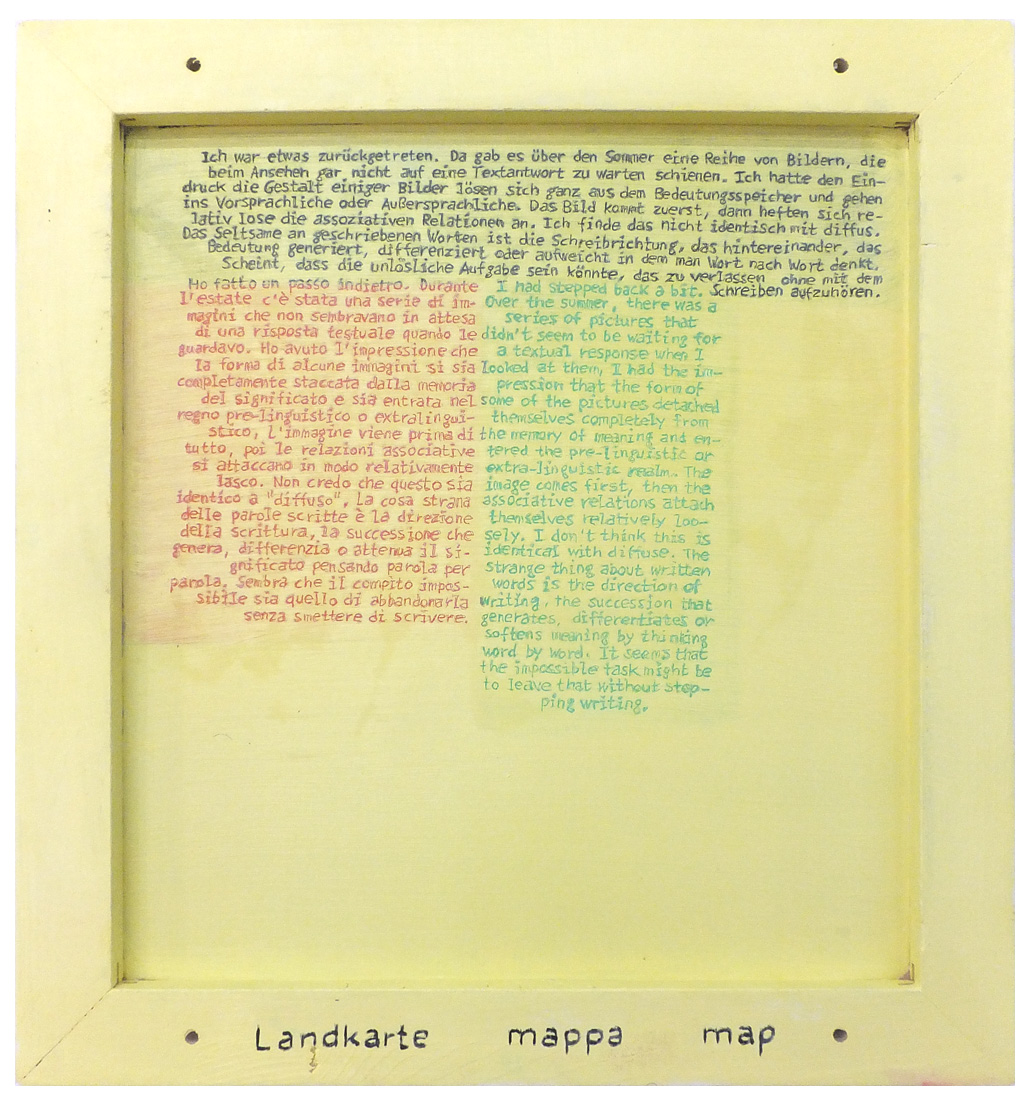 Ich war etwas zurückgetreten. Da gab es über den Sommer eine Reihe von Bildern, die
beim Ansehen gar nicht auf eine Textantwort zu warten schienen. Ich hatte den Ein-
druck die Gestalt einiger Bilder lösen sich ganz aus dem Bedeutungsspeicher und gehen
ins Vorsprachliche oder Außersprachliche. Das Bild kommt zuerst, dann heften sich re-
lativ lose die assoziativen Relationen an. Ich finde das nicht identisch mit diffus.
Das Seltsame an geschriebenen Worten ist die Schreibrichtung, das hintereinander, das
Bedeutung generiert, differenziert oder aufweicht in dem man Wort nach Wort denkt.
Scheint, dass die unlösliche Aufgabe sein könnte, das zu verlassen ohne mit dem
Schreiben aufzuhören.
Ho fatto un passo indietro. Durante
l'estate c'è stata una serie di im-
magini che non sembravano in attesa
di una risposta testuale quando le
guardavo. Ho avuto l'impressione che
la forma di alcune immagini si sia
completamente staccata dalla memoria
del significato e sia entrata nel
regno pre-linguistico o extralingui-
stico, L'immagine viene prima di
tutto, poi le relazioni associative
si attaccano in modo relativamente
lasco. Non credo che questo sia
identico a "diffuso". La cosa strana
delle parole scritte è la direzione
della scrittura, la successione che
genera, differenzia o attenua il si-
gnificato pensando parola per
parola. Sembra che il compito impos-
sibile sia quello di abbandonarla
senza smettere di scrivere.
I had stepped back a bit.
Over the summer, there was a
series of pictures that
didn't seem to be waiting for
a textual response when I
looked at them, I had the im-
pression that the form of
some of the pictures detached
themselves completely from
the memory of meaning and en-
tered the pre-linguistic or
extra-linguistic realm. The
image comes first, then the
associative relations attach
themselves relatively loo-
sely. I don't think this is
identical with diffuse. The
strange thing about written
words is the direction of
writing, the succession that
generates, differentiates or
softens meaning by thinking
word by word. It seems that
the impossible task might be
to leave that without stop-
ping writing.
Landkarte mappa map